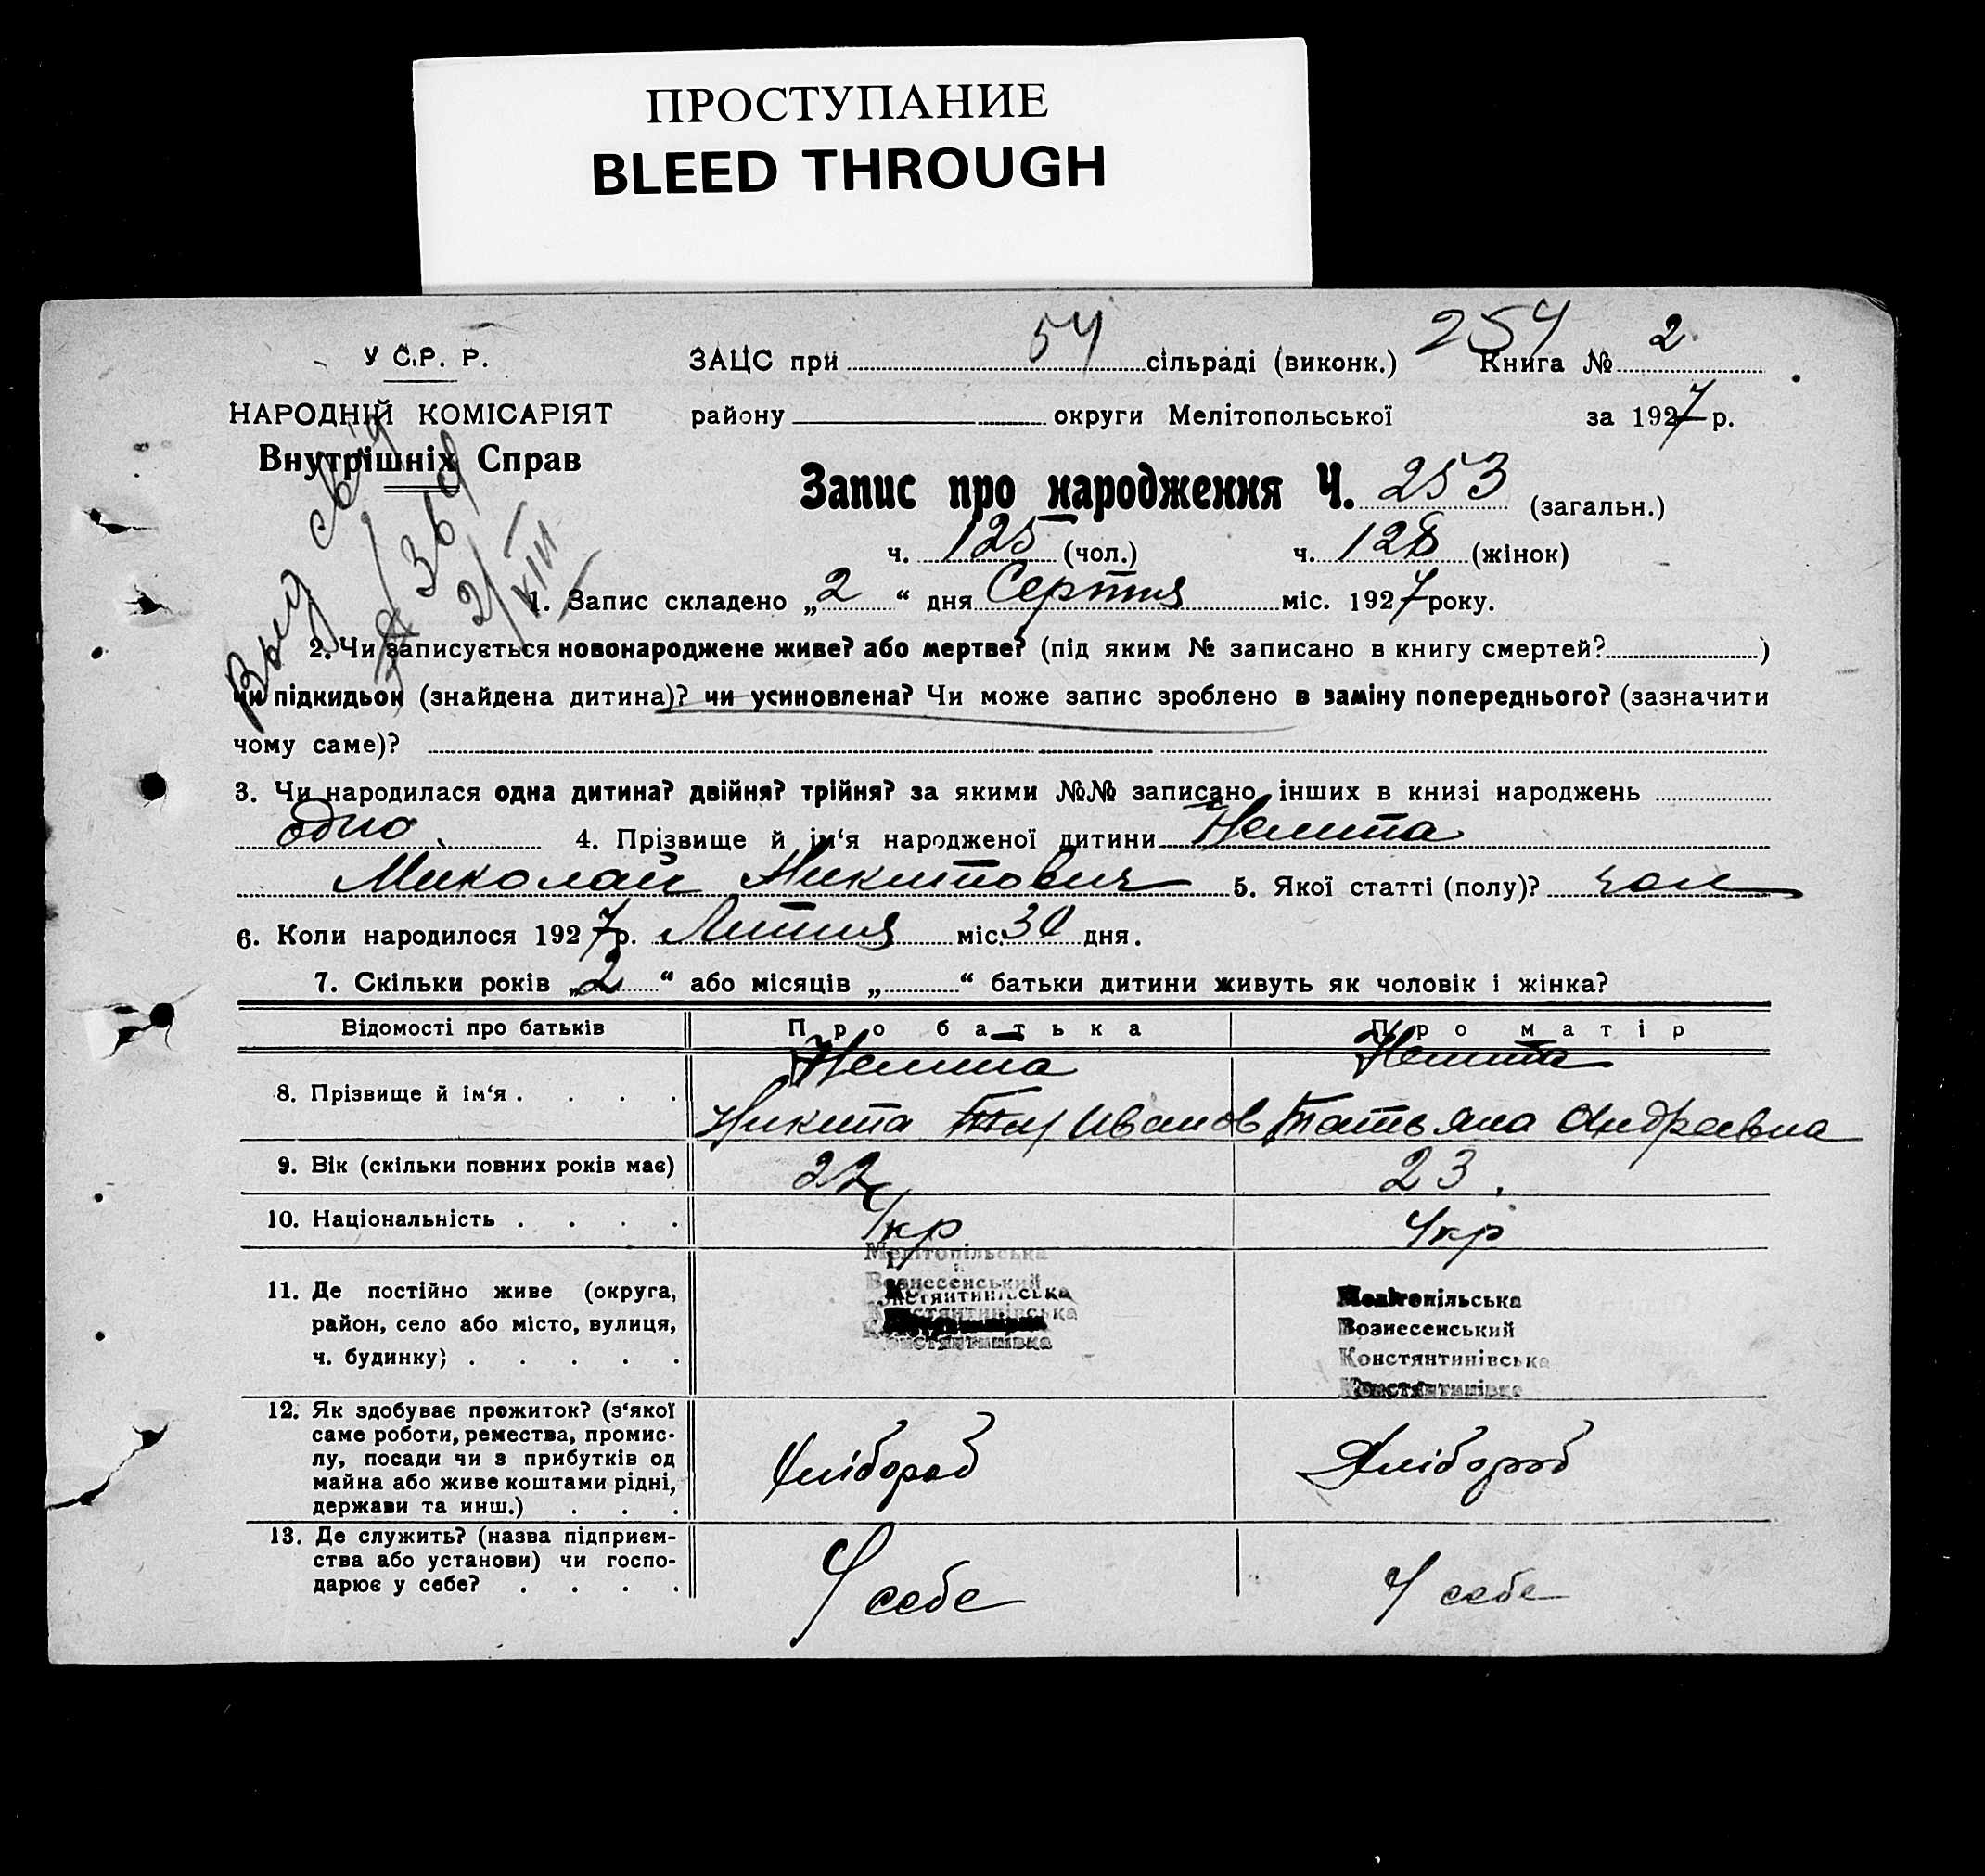 ПРОСТУПАНИЕ
BLEED THROUGH
У С.Р. Р. ЗАЦС при 54 сільраді (виконк.) 254 Книга № 2
НАРОДНІЙ КОМІСАРІЯТ району округи Мелітопольської за 1927 р.
Внутрішніх Справ
Запис про народження Ч. 253 (загальн.)
ч. 125 (чол.) ч. 128 (жінок)
1. Запис складено „2“ дня Серпня міс. 1927 року.
2. Чи записується новонароджене живе? або мертве? (під яким № записано в книгу смертей? )
чи підкидьок (знайдена дитина)? чи усиновлена? Чи може запис зроблено в заміну попереднього? (зазначити
чому саме)?
3. Чи народилася одна дитина? двійня? трійня? за якими №№ записано інших в книзі народжень
одно 4. Прізвище й ім‘я народженої дитини
Миколай Никитович 5. Якої статті (полу)? чол
6. Коли народилося 1927 р. Липня міс. 30 дня.
7. Скільки років „2“ або місяців „ “ батьки дитини живуть як чоловік і жінка?
Відомості про батьків Про батька Про матір
8. Прізвище й ім‘я . . . . Никита Иванов Татьяна Андреевна
9. Вік (скільки повних років має) 22 23.
10. Національність . . . . Укр Укр
Мелітопільська
Вознесенський
11. Де постійно живе (округа, Мелітопільська
район, село або місто, вулиця, Констянтинівська Вознесенський
ч. будинку) . . . . . Констянтинівка Констянтинівська
Констянтинівка
12. Як здобуває прожиток? (з‘якої
саме роботи, ремества, промис-
лу, посади чи з прибутків од Хлібороб Хлібороб
майна або живе коштами рідні,
держави та инш.) . . .
13. Де служить? (назва підприєм-
ства або установи) чи госпо- У себе У себе
дарює у себе? . . . .